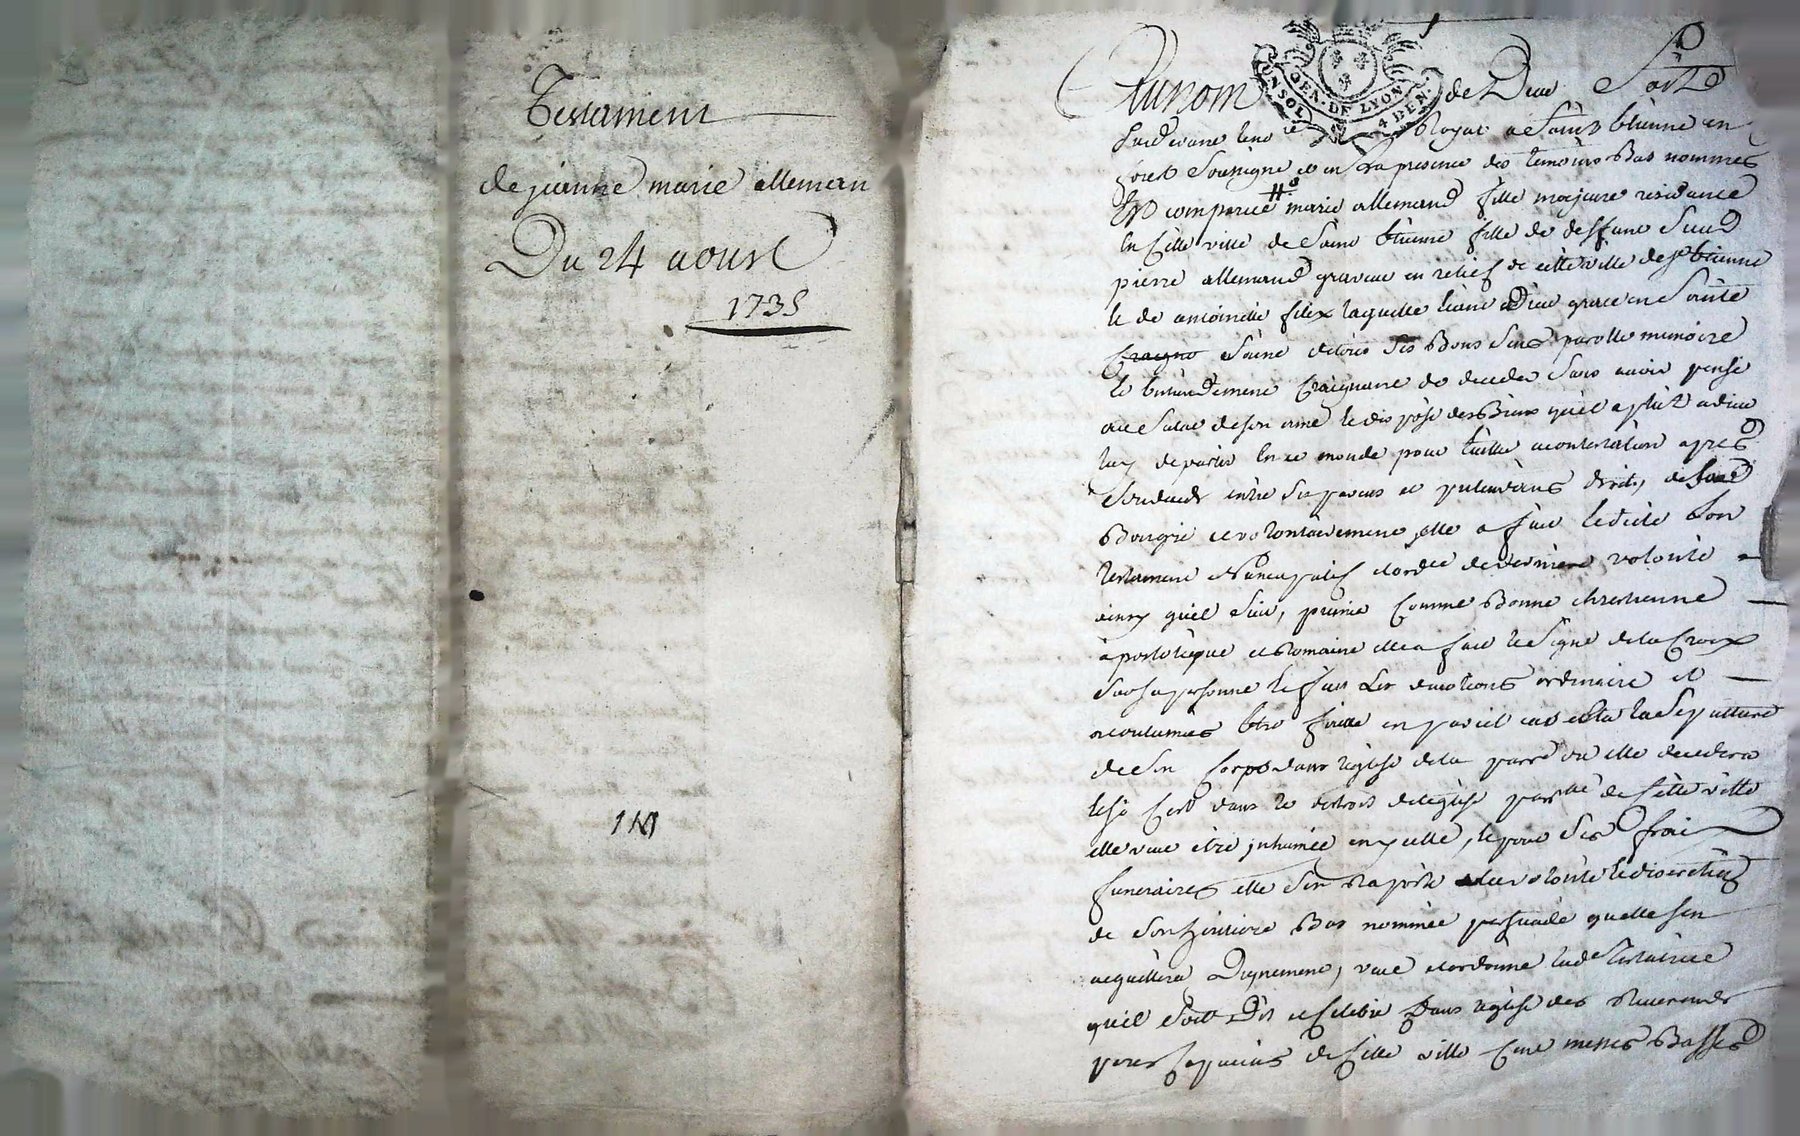 Testament
de jeanne marie alleman
Du 24 aoust
1735
Au nom de Dieu Soit
GEN. DE LYON
4 DEN.
Royal a Saint Etienne en
forest Soussigné et en La presence des temoins Bas nommés
comparüe marie allemand fille majeure residante
En Cette ville de Saint Etienne fille de deffunt Sieur
pierre allemand graveur en relief de cette ville de St Etienne
Et de antoinette filix laquelle étant a Dieu grace en Santé
Saine de tous Ses Bons Sens parolle memoire
Et Entendement Craignant de deceder Sans avoir pensé
au Salut de son ame Et disposé des Biens qu'il a plût a dieu
luy departir En ce monde pour Eviter a contestation apres
Son deceds entre Ses parens et pretendans droits, de Son
Bon gré et volontairement, elle a fait Et dicté Son
testament Nuncupatif et ordre de derniere volonté
ainsy qu'il Suit, primo Comme Bonne chrestienne
apostolique et Romaine elle a fait le Signe de la Croix
Sur Sa personne Et fait Les devotions ordinaire et
acoutumées Etre faitte en pareil cas Elu la Sepulture
de Son Corps dans l'eglise de la parr. ou elle decedera
Et Si C'est dans le detroit de l'eglise de Cette ville
elle veut etre inhumée en ycelle, Et pour Ses frais
funeraires elle S'en Raporte a la volonté Et discretion
de Son heritiere Bas nommée persuadé quelle S'en
acquittera Dignement, veut et ordonne lad.e testatrice
quil Soit Dit et Celebré Dans l'eglise des Reverends
peres Capucins de Cette ville Cent messes Basses